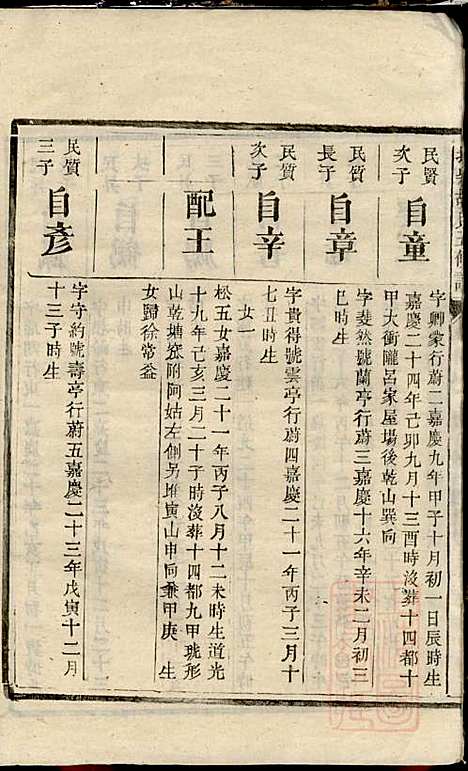 民賢
次子
自童
字卿蒙行蔚二嘉慶九年甲子十月初一日辰時生
嘉慶二十四年己卯九月十三酉時沒葬十四都十
甲大衝隴呂家屋場後乾山巽向
民質
長子
自章
字斐然號蘭亭行蔚三嘉慶十六年辛未二月初三
巳時生
民質
次子
自辛
字貴得號雲亭行蔚四嘉慶二十一年丙子三月十
七丑時生
女一
配王
松五女嘉慶二十一年丙子八月十二未時生道光
十九年己亥三月二十子時沒葬十四都九甲珧形
山乾塘漈附阿姑左側另堆寅山申向兼甲庚 生
女歸徐常益
民質
三子
自彥
字守約號壽亭行蔚五嘉慶二十三年戊寅十二月
十三子時生